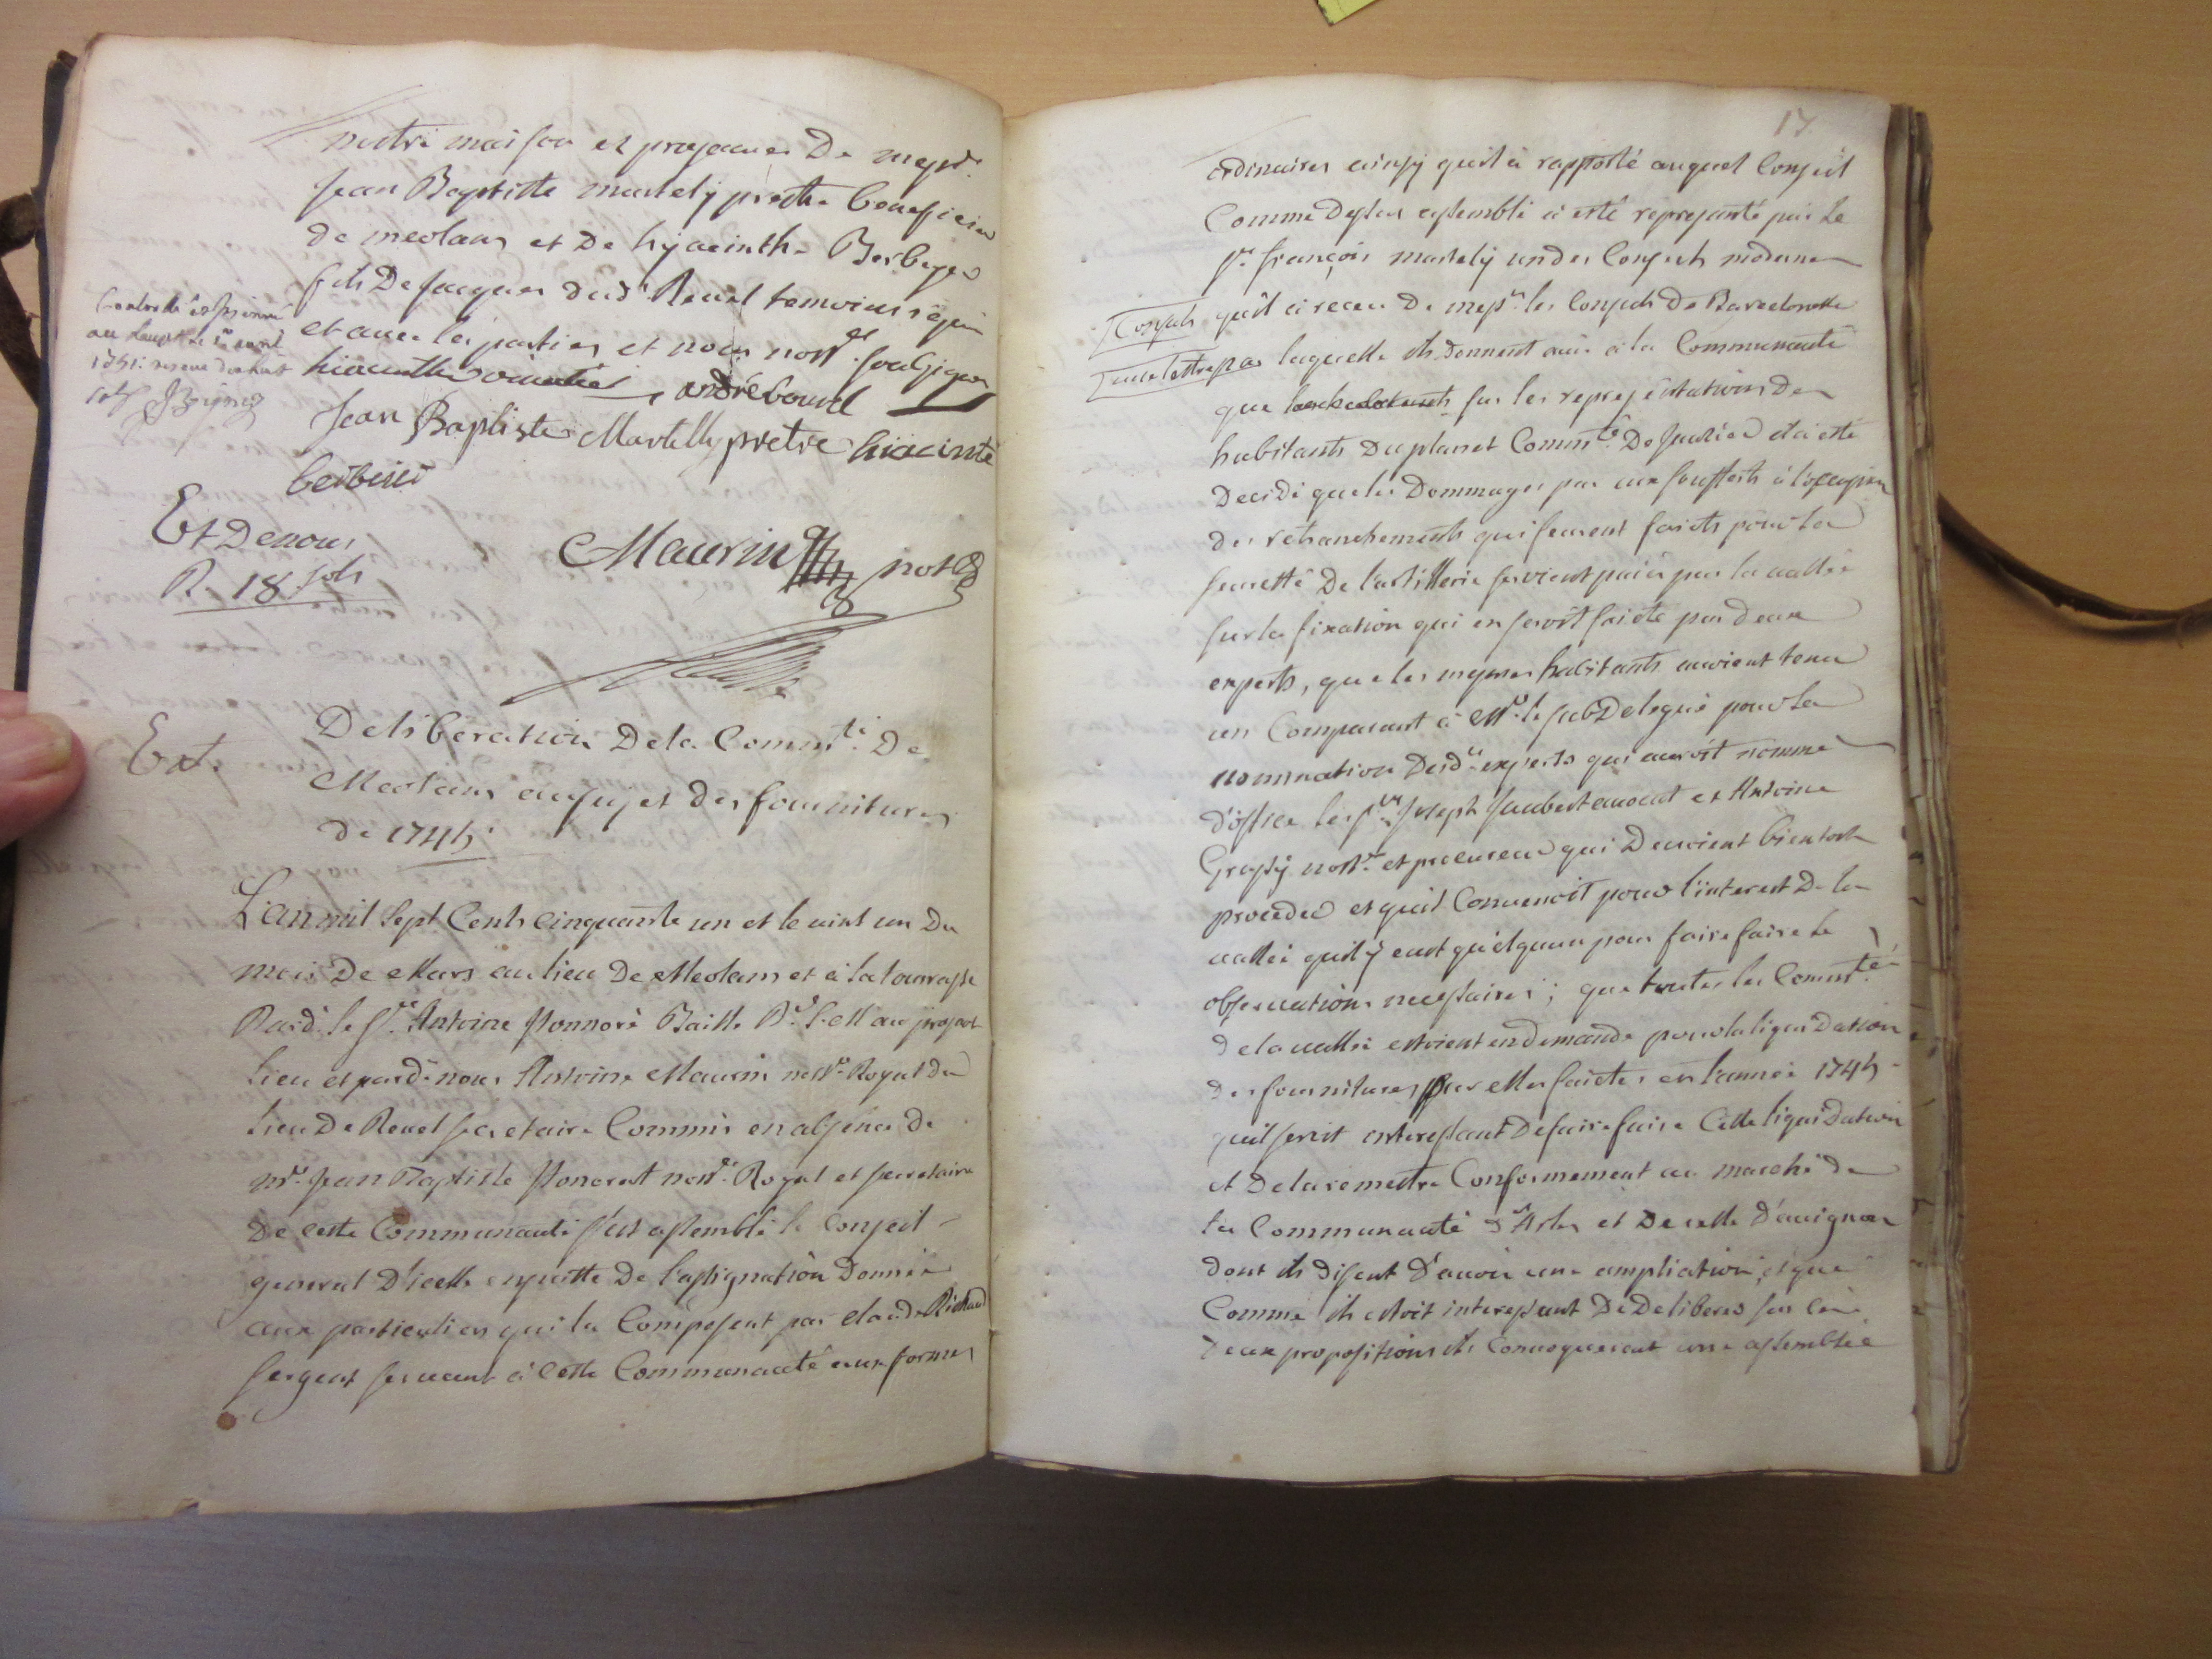 nostre maison et presance De messre
Jean Baptiste martely prestre beneficier
de meolans et De hyacinthe Berbeyer
fils De Jacques dud. Revel temoins requis
et avec les parties et nous nott. soussignés
hiacinthe andré bourel
Jean Baptiste Martelly pretre hiacinte
berbeier
Controllé
1751: sols
Et De nous
R. 18 sols
Maurin notre
Ext.
Deliberation De la Commté De
Meolans au sujet Des fournitures
de 1745
L'an mil sept Cents cinquante un et le vint un Du
mois De Mars au lieu De Meolans et à la
Pard. le sr. Antoine honnoré Baille au present
lieu et pard. nous Antoine Maurin nottre Royal Du
lieu De Revel secretaire Commis en absence de
mre Jean Baptiste honorat nottre Royal et secretaire
De ceste Communauté s'est assemblé le Conseil
general D'icelle ensuitte De l'assignation Donnée
aux particuliers qui la Composent par Claude Richaud
sergent servant à cette Communauté aux formes
17
ordinaires ainsy quil a rapporté auquel Conseil
Comme Dessus assemblé a esté represanté par le
sr. françois martely un des Consuls modernes
Consuls
qu'il a receu De messrs les Consuls De Barcelonette
une lettre par
laquelle ils Donnent avis à la Communauté
que sur les represéntations Des
habitants Du planet Commté De Jausier il a esté
Decidé que les Dommages par eux soufferts à l'occasion
des retranchements qui feurent faicts pour la
seuretté De l'artillerie seroient paiés par la vallée
sur la fixation qui en seroit faicte par Deux
experts, que les mesmes habitants avoient tenu
un Comparant à Mr. le subDelegué pour la
nomination Desds experts qui auroit nommé
D'office les srs Joseph Jaubert avocat et Antoine
Grassy nottre et procureur qui Devoient bientost
proceder et quil Convenoit pour l'interest De la
vallée quil y eust quelqun pour faire faire les
observations necessaires; que toutes les Commtés
de la vallée estoient en Demande pour la liquidation
des fournitures par elles faictes en l'année 1745
quil seroit interessant De faire faire Cette liquidation
et De la remettre Conformement au marché de
la Communauté d'Arles et De celle D'avignon
Dont ils Disent D'avoir une ampliation, et que
Comme il estoit interessant De Deliberer sur Ces
Deux propositions ils Convoqueroient une assemblée